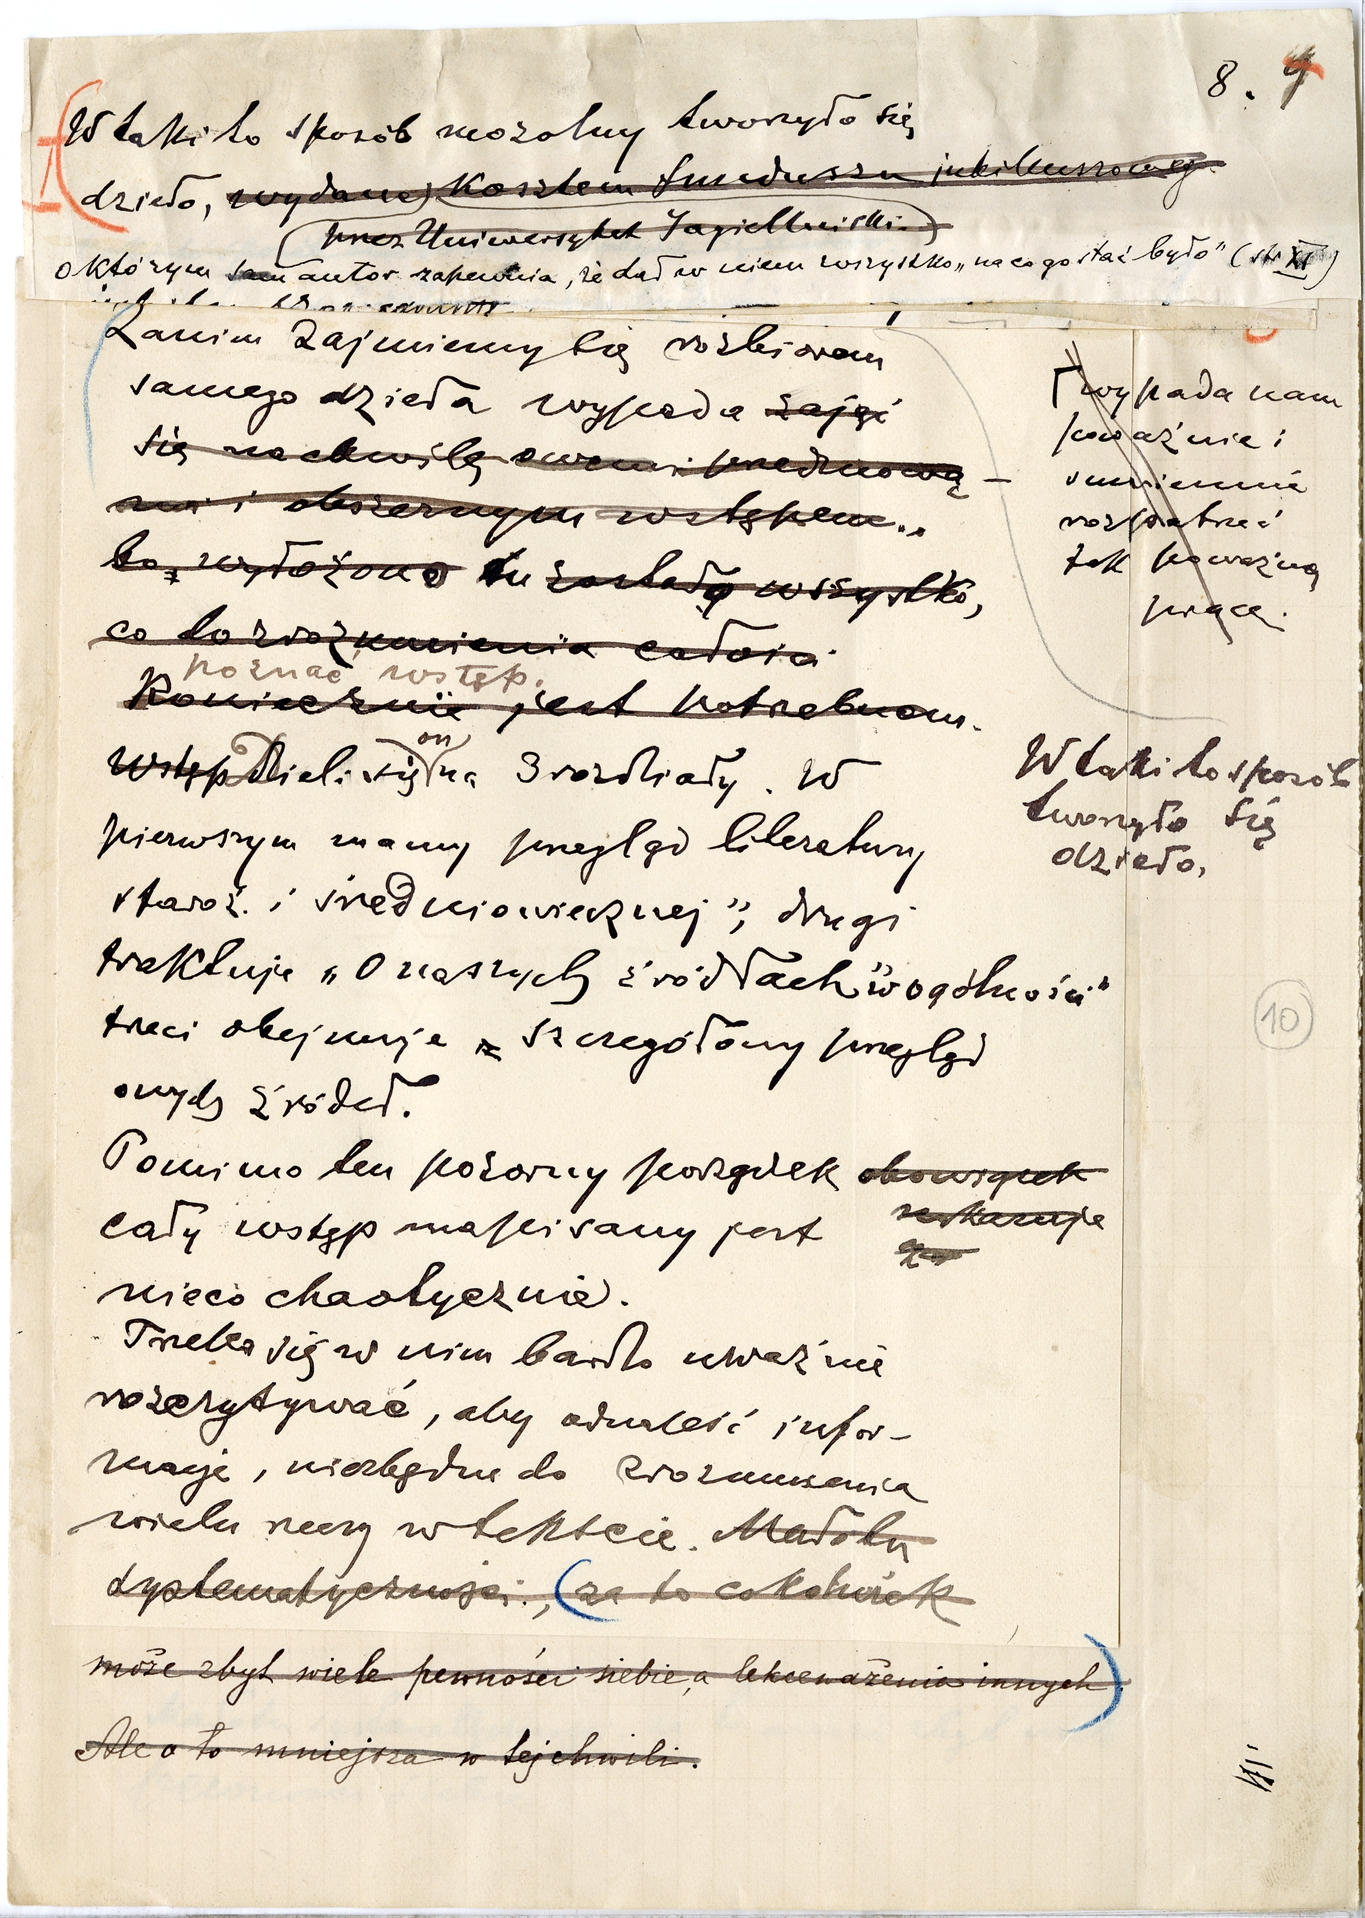 8. 9
W taki to sposób mozolny tworzyło się
dzieło, wydane kosztem funduszu jubileuszowego
przez Uniwersytet Jagielloński.
o którym sam autor zapewnia, że dał w niem wszystko „na co go stać było” (str XI)
Zanim zajmiemy się rozbiorem
samego dzieła wypada zająć
się na chwilę owemi przedmową-
mi i obszernym wstępem..
bo, wyłożono tu zasadę wszystko,
co do zrozumienia całości
poznać wstęp.
Koniecznie jest potrzebnem.
Wstęp Dzieli się on na 3 rozdziały. W
pierwszym mamy przegląd literatury
staroż. i średniowiecznej”, drugi
traktuje „O naszych źródłach” w ogólności”
trzeci obejmuje szczegółowy przegląd
owych źródeł.
Pomimo ten pozorny porządek obowiązek
cały wstęp napisany jest
nieco chaotycznie.
Trzeba się w nim bardzo uważnie
rozczytywać, aby odnaleść infor-
macje, niezbędne do zrozumienia
wielu rzeczy w tekście. Mało tu
systematyczności., (za to cokolwiek
może zbyt wiele pewności siebie, a lekceważenia innych).
Ale o to mniejsza w tej chwili.
wypada nam
poważnie i
sumiennie
rozpatrzeć
tak poważną
pracę.
W taki to sposób
tworzyło się
dzieło.
10